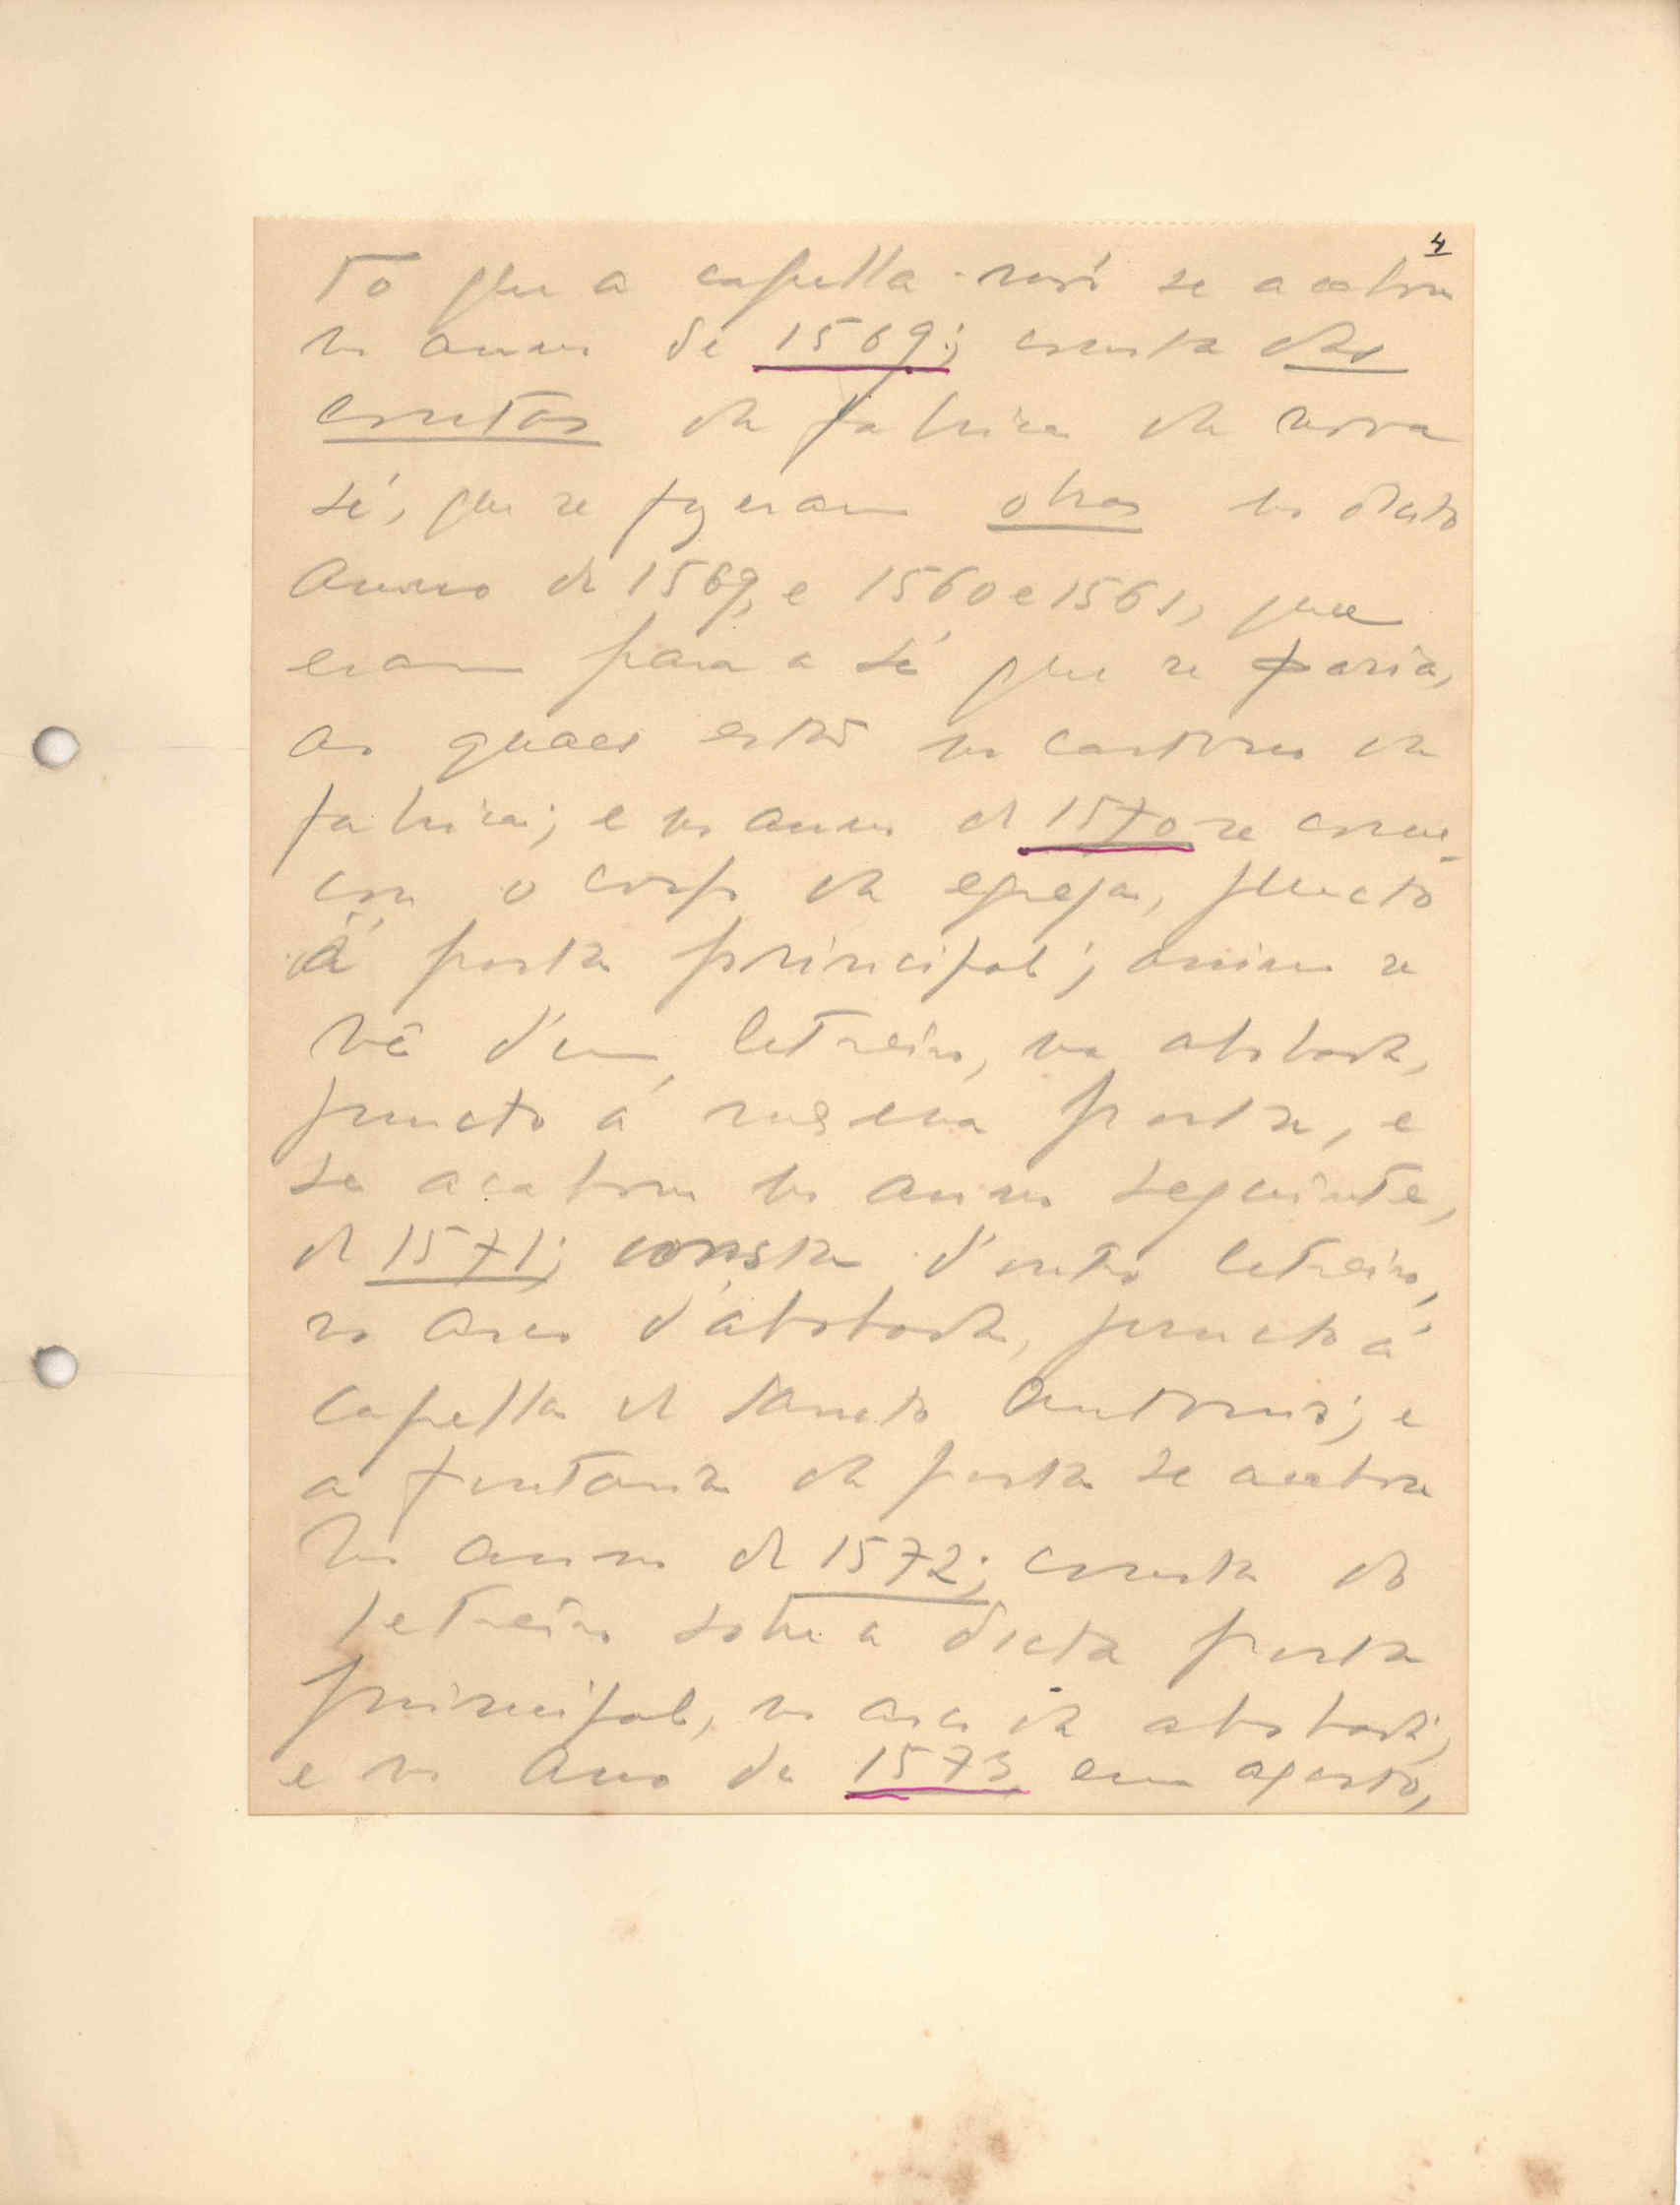 4
to que a capella-mór se acabou
no anno de 1569; consta das
contas da fabrica da nova
sé, que se fizeram obras no dicto
anno de 1569, e 1560 e 1561, que
eram para a sé que se fazia,
as quaes estão no cartorio da
fabrica; e no anno de 1570 se come-
çou o corpo da egreja, juncto
á porta principal; assim se
vê d'um letreiro, na aboboda,
juncto á mesma porta, e
se acabou no anno seguinte,
de 1571; consta d'outro letreiro,
no arco d'aboboda, juncto á
capella de Sancto Antonio; e
a frontaria da porta se acabou
no anno de 1572; consta do
letreiro sobre a dicta porta
principal, no arco da aboboda;
e no ano de 1573 em agosto,